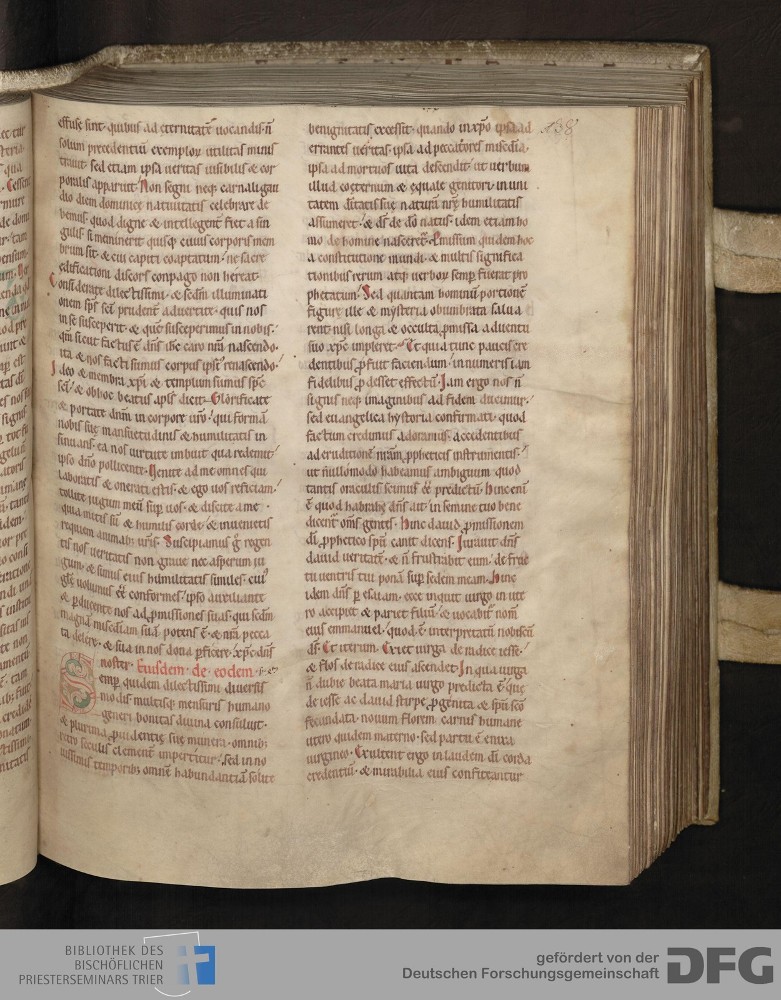 effuse sunt quibus ad eternitatē uocandis n̄
solum precedentiū exemplorum utilitas minis
trauit sed etiam ipsa ueritas uisibilis & cor
poralis apparuit. Non segni neque carnali gau
dio diem dominice natiuitatis celebrare de
bemus. quod digne & intellegent fiet a sin
gulis si meminerit quisque cuius corporis mem
brum sit & cui capiti coaptatum. ne sacre
edificationi discors conpago non hereat.
Considerate dilectissimi & sc̄dm illuminati
onem sp̄s sc̄i prudent aduertite. quis nos
in se susceperit. & quē susceperimus in nobis.
qm̄ sicut factus ē dn̄s ih̄c caro nr̄a nascendo.
ita & nos facti sumus corpus ipsi renascendo.
Ideo & membra xp̄i & templum sumus sp̄c
sc̄i. & ob hoc beatus apl̄s dicit. Glorificate
& portate dn̄m in corpore ur̄o. qui formā
nobis sue mansuetudinis & humilitatis in
sinuans. ea nos uirtute imbuit qua redemit
ipso dn̄o pollicente. Uenite ad me omnes qui
laboratis & onerati estis. & ego uos reficiam.
tollite iugum meū sup uos. & discite a me
quia mitis sū & humilis corde. & inuenietis
requiem animabus uris. Suscipiamus g̊ regen
tis nos ueritatis non graue nec asperum iu
gum. & simus eius humilitati similes. cui
glę uolumus eē conformes. ipso auxiliante
& pducente nos ad pmissiones suas. qui sc̄dm
magnā misc̄diam suā potens ē & nr̄a pecca
ta delere. & sua in nos dona pficere. xp̄c dn̄s
noster. Eiusdem de eodem.
Semp quidem dilectissimi diuersis
modis multisque mensuris humano
generi bonitas diuina consuluit.
& plurima prouidentię suę munera. omnibus
retro seculis clement impertitur. sed in no
uissimis temporibus omnē habundantiā solite
138
benignitatis excessit. quando in xp̄o ipsa ad
errantes ueritas. ipsa ad peccatores misc̄dia.
ipsa ad mortuos uita descendit. ut uerbum
illud coeternum & equale genitori in uni
tatem diītatis sue naturā nr̄e humilitatis
assumeret. & ds̄ de dō natus. idem etiam ho
mo de homine nasceret. Pmissum quidem hoc
a constitutione mundi. & multis significa
tionibus rerum atque uerborum semp fuerat pro
phetatum. Sed quantam hominū portionē
figure ille & mysteria obumbrata salua
rent. nisi longa & occulta pmissa aduentu
suo xp̄c impleret. Et qua tunc paucis cre
dentibus pfuit faciendum. innumeris iam
fidelibus pdesset effectū. Iam ergo nos n̄
signis neque imaginibus ad fidem ducimur.
sed euangelica hystoria confirmati. quod
factum credimus adoramus. accedentibus
ad eruditionē nr̄am ppheticis instrumentis.
ut nullomodo habeamus ambiguum quod
tantis oraculis scimus eē predictū. Hinc enī
ē quod habrahę dn̄s ait. in semine tuo bene
dicent om̄s gentes. Hinc dauid pmissionem
dī pphetico spū canit dicens. Iurauit dn̄s
dauid ueritatē. & n̄ frustrabit eum. de fruc
tu uentris tui ponā sup sedem meam. Hinc
idem dn̄s p esaiam. ecce inquit uirgo in ute
ro accipiet & pariet filiū. & uocabit nom̄
eius emmanuel. quod ē interpretatū nobiscū
ds̄. Et iterum. Exiet uirga de radice iesse.
& flos de radice eius ascendet. In qua uirga
n̄ dubie beata maria uirgo predicta ē. que
de iesse ac dauid stirpe pgenita & spū sc̄o
fecundata. nouum florem carnis humane
utero quidem materno. sed partu ē enixa
uirgineo. Exultent ergo in laudem dī corda
credentiū. & mirabilia eius confiteantur
BIBLIOTHEK DES
BISCHÖFLICHEN
PRIESTERSEMINARS TRIER
gefördert von der
Deutschen Forschungsgemeinschaft
DFG